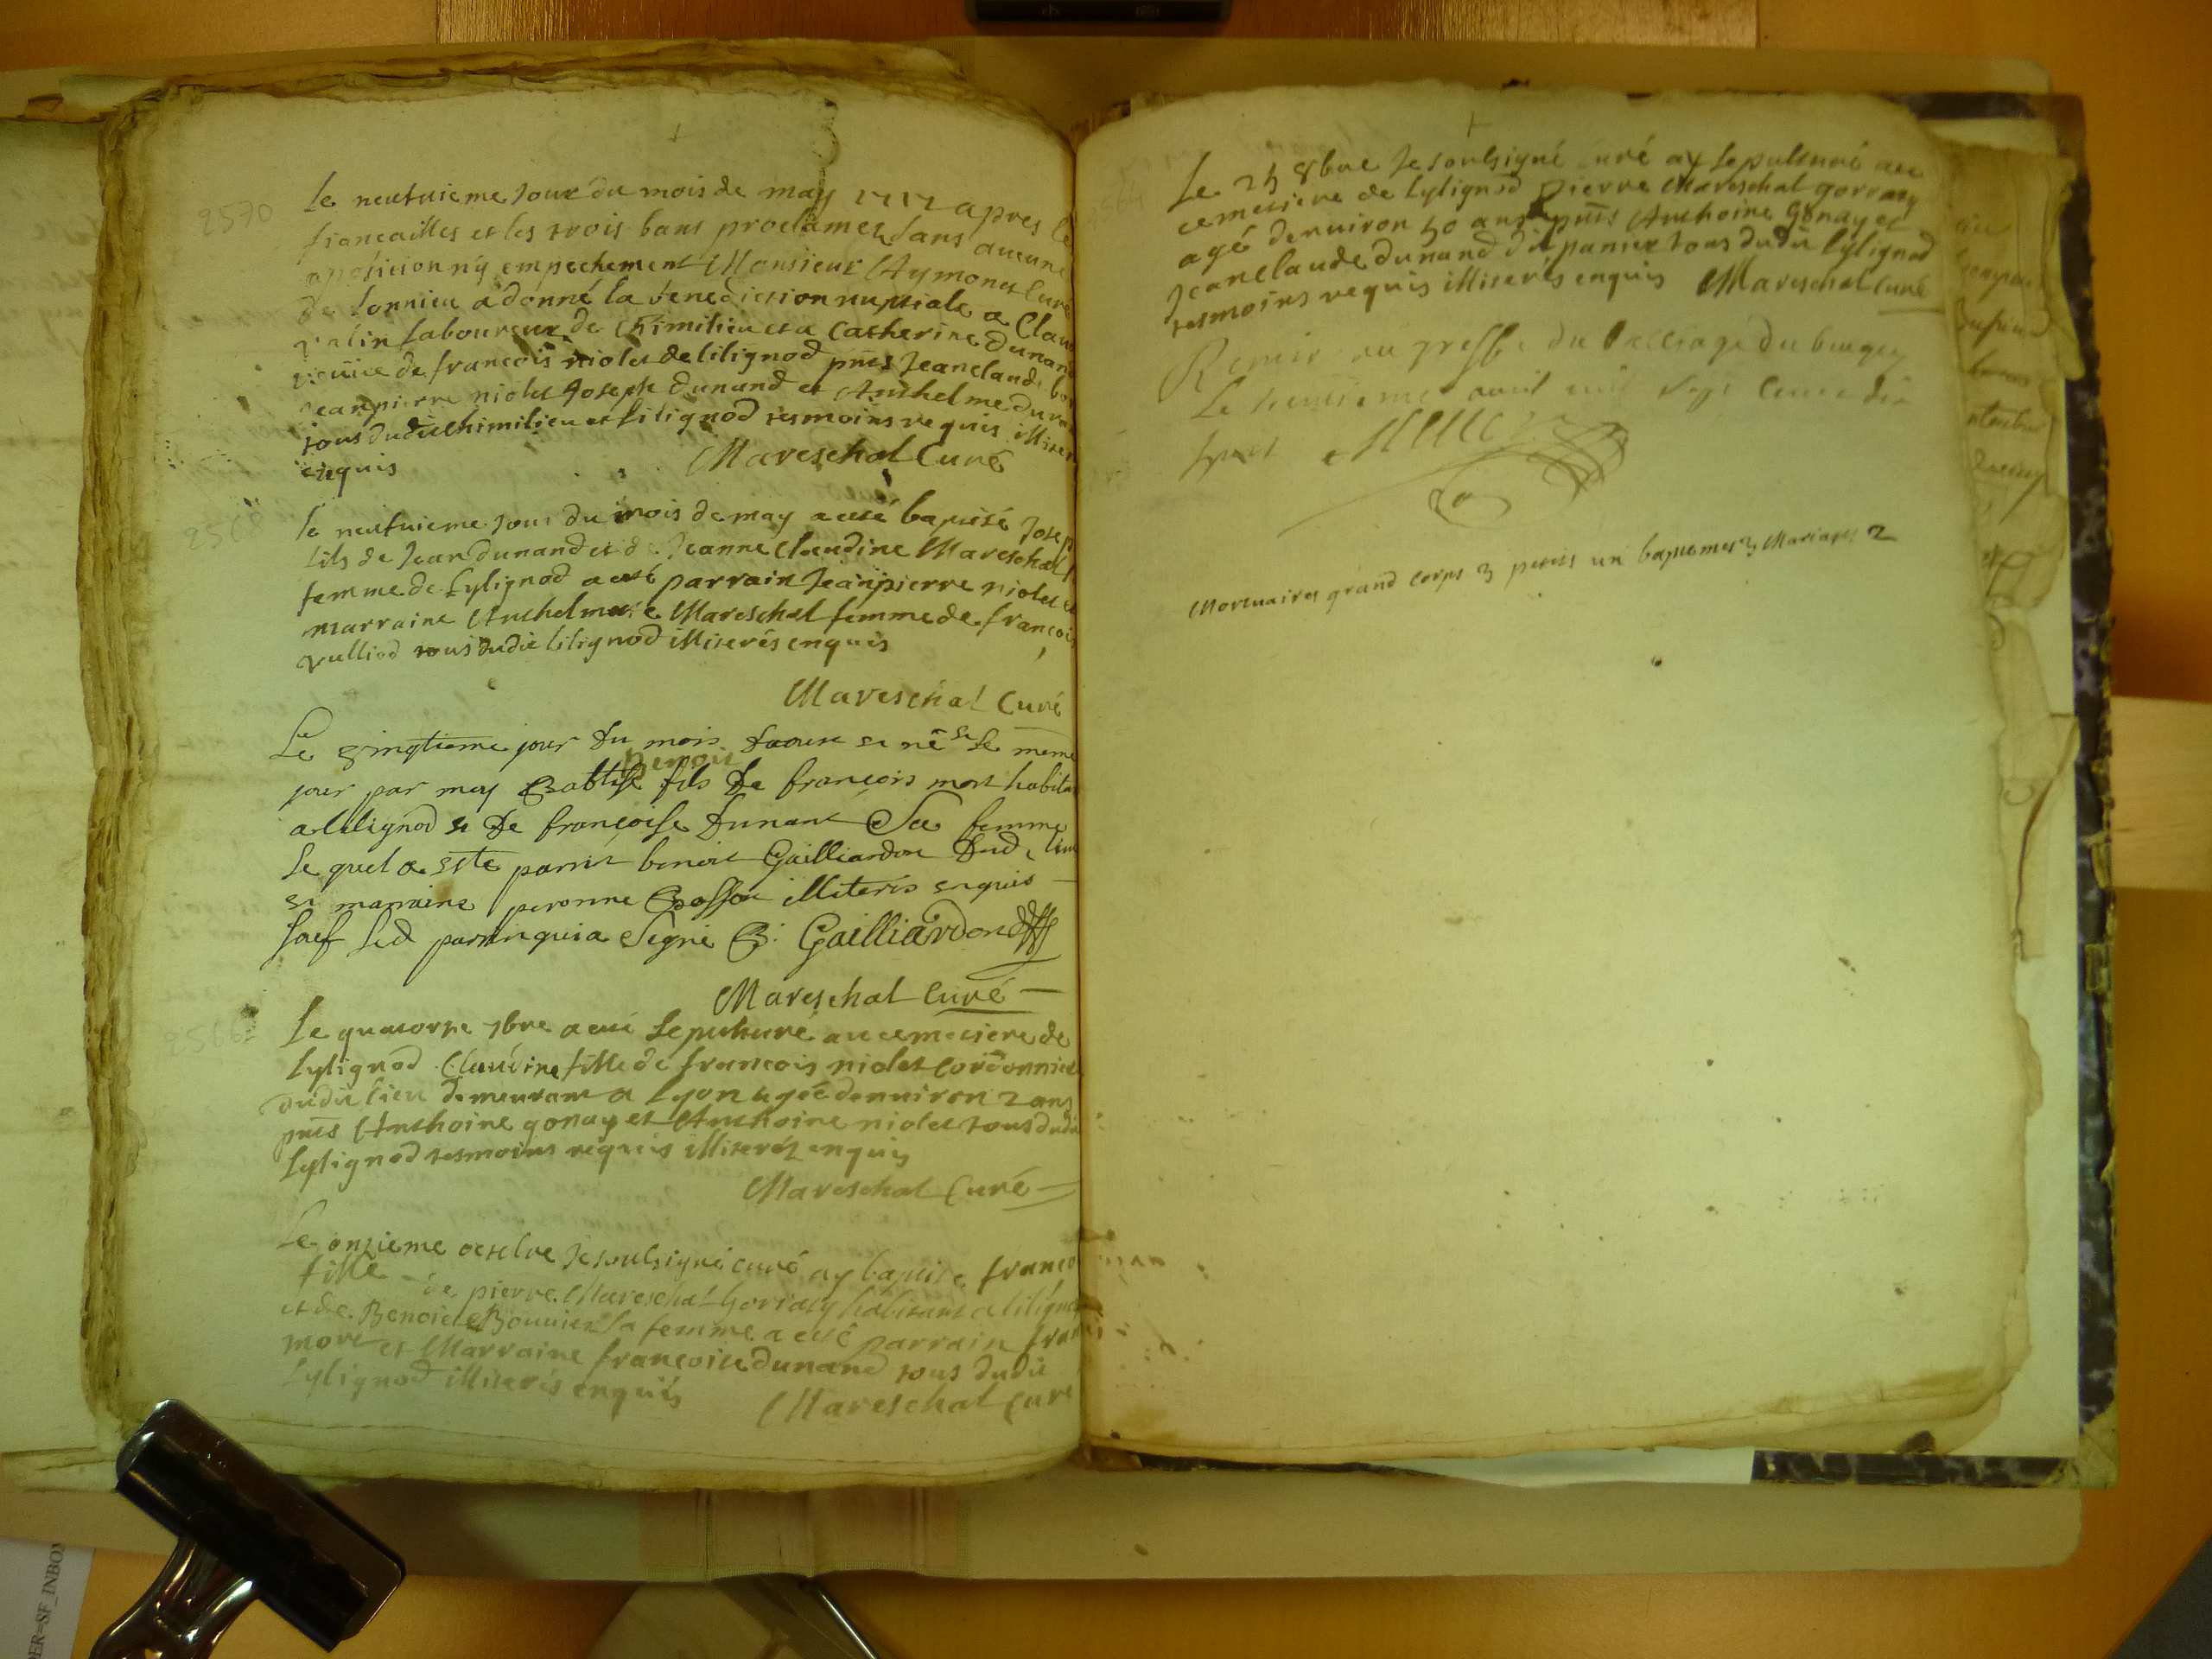 2570
le neufuieme jour du mois de may 1717 apres le
fiancailles et les trois bans proclamez sans aucune
oposicion ny empechement Monsieur Aymonet Curé
de Sonnieu a donné la benediction nuptiale a Claud
Valin laboureur de Chimilieu et a Catherine dunand
veuue de francois niolet de lilignod pnts Jeanclaude
Jeanpierre niolet Joseph dunand et Anthelme dunan
tous dudit Chimilieu et lilignod tesmoins requis illiter
enquis
Mareschal Curé
2568
le neufuieme jour du mois de may a esté baptisé Josep
fils de Jean dunand et de Jeanne Claudine Mareschal
femme de Lylignod a esté parrain Jeanpierre niolet et
marraine Anthelmete Mareschal femme de francois
Vulliod tous dudit lilignod illiterés enquis
Mareschal Curé
Le vingtieme jour du mois daoust et né le meme
Benoit
jour par moy Babtisé fils de françois mort habita
a lilignod et de françoise dunant Sa femme
Le quel a esté parrin benoit Gailliardon dud lieu
et marraine peronne illiterés enquis
sauf led parrin qui a Signé B. Gailliardon
Mareschal Curé
2566
Le quatorze 7bre a esté Sepulturé au cemetiere de
Lylignod Claudine fille de francois niolet cordonnier
dudit lieu demeurant a Lyon agée denuiron 2 ans
pnts Anthoine gonay et Anthoine niolet tous dudit
Lylignod tesmoins requis illiterez enquis
Mareschal Curé
Le onzieme octobre Je soulsigné curé ay baptisé franco
fille de pierre Mareschal Gorraty habitant a lilignod
et de Benoite Bouuier sa femme a esté parrain fran
mort et Marraine françoise dunand tous dudit
Lylignod illiterés enquis
Mareschal Curé
Le 25 8bre Je soulsigné curé ay Sepulturé au
cemetiere de Lylignod pierre Mareschal gorraty
agé denuiron 50 ans pnts Anthoine gonay et
Jeanclaude dunand dit panier tous dudit Lylignod
tesmoins requis illiterés enquis Mareschal Curé
Remis au greffe du Balliage du bugey
Le auril mil sept cent dix
huit
Mortuaires grand corps 2 petits un baptemes 3 Mariages 2
DER=SF_INBOX